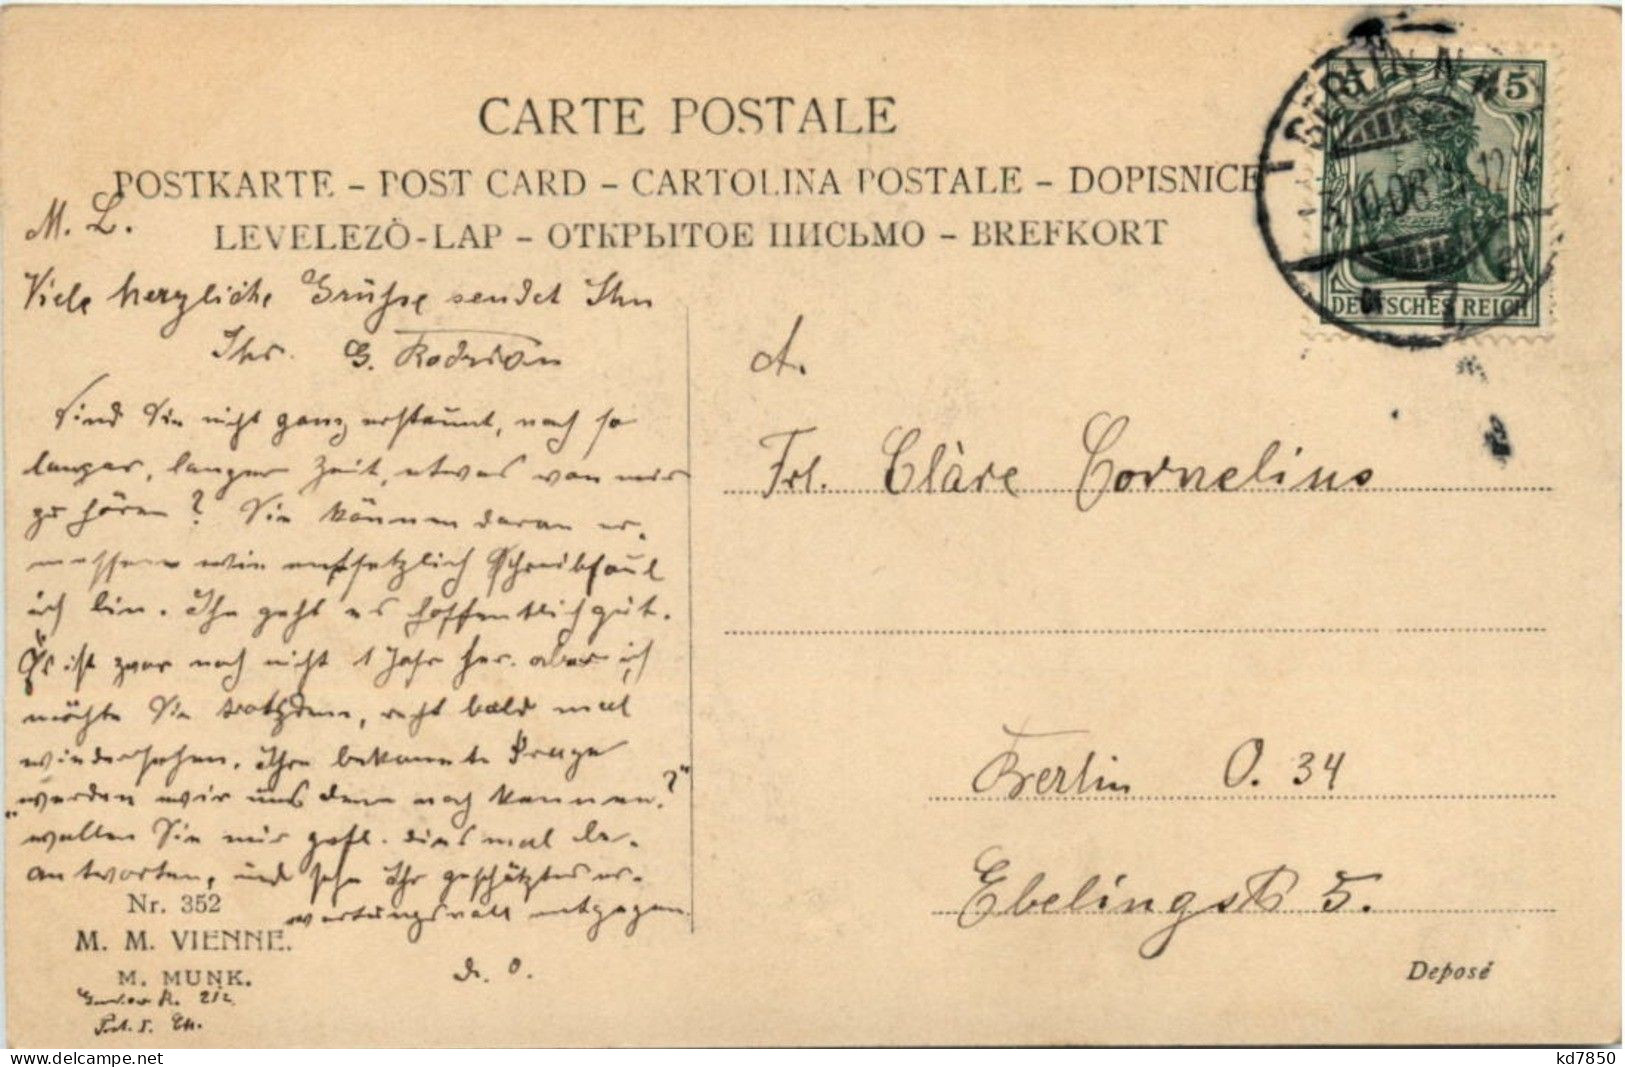 CARTE POSTALE
POSTKARTE – POST CARD – CARTOLINA POSTALE – DOPISNICE
LEVELEZÖ-LAP – ОТКРЫТОЕ ПИСЬМО – BREFKORT
BERLIN N.W.
10.08
7
5
DEUTSCHES REICH
M. L.
Viele herzliche Grüße sendet Ihn
Ihr. G.
Sind Sie nicht ganz erstaunt, nach so
langer, langer Zeit, etwas von mir
zu hören? Sie können daran er-
messen wie entsetzlich schreibfaul
ich bin. Ihn geht es hoffentlich gut.
Es ist zwar noch nicht 1 Jahr her. aber ich
möchte Sie trotzdem, recht bald mal
wiedersehen. Ihre bekannte Frage
„werden wir uns denn noch kennen?"
wollen Sie mir gefl. dies mal be-
antworten, und sehe Ihr geschätztes er-
wartungsvoll entgegen.
d. O.
A.
Frl. Cläre Cornelius
Berlin O. 34
Ebelingstr 5.
Nr. 352
M. M. VIENNE.
M. MUNK.
Deposé
www.delcampe.net
kd7850